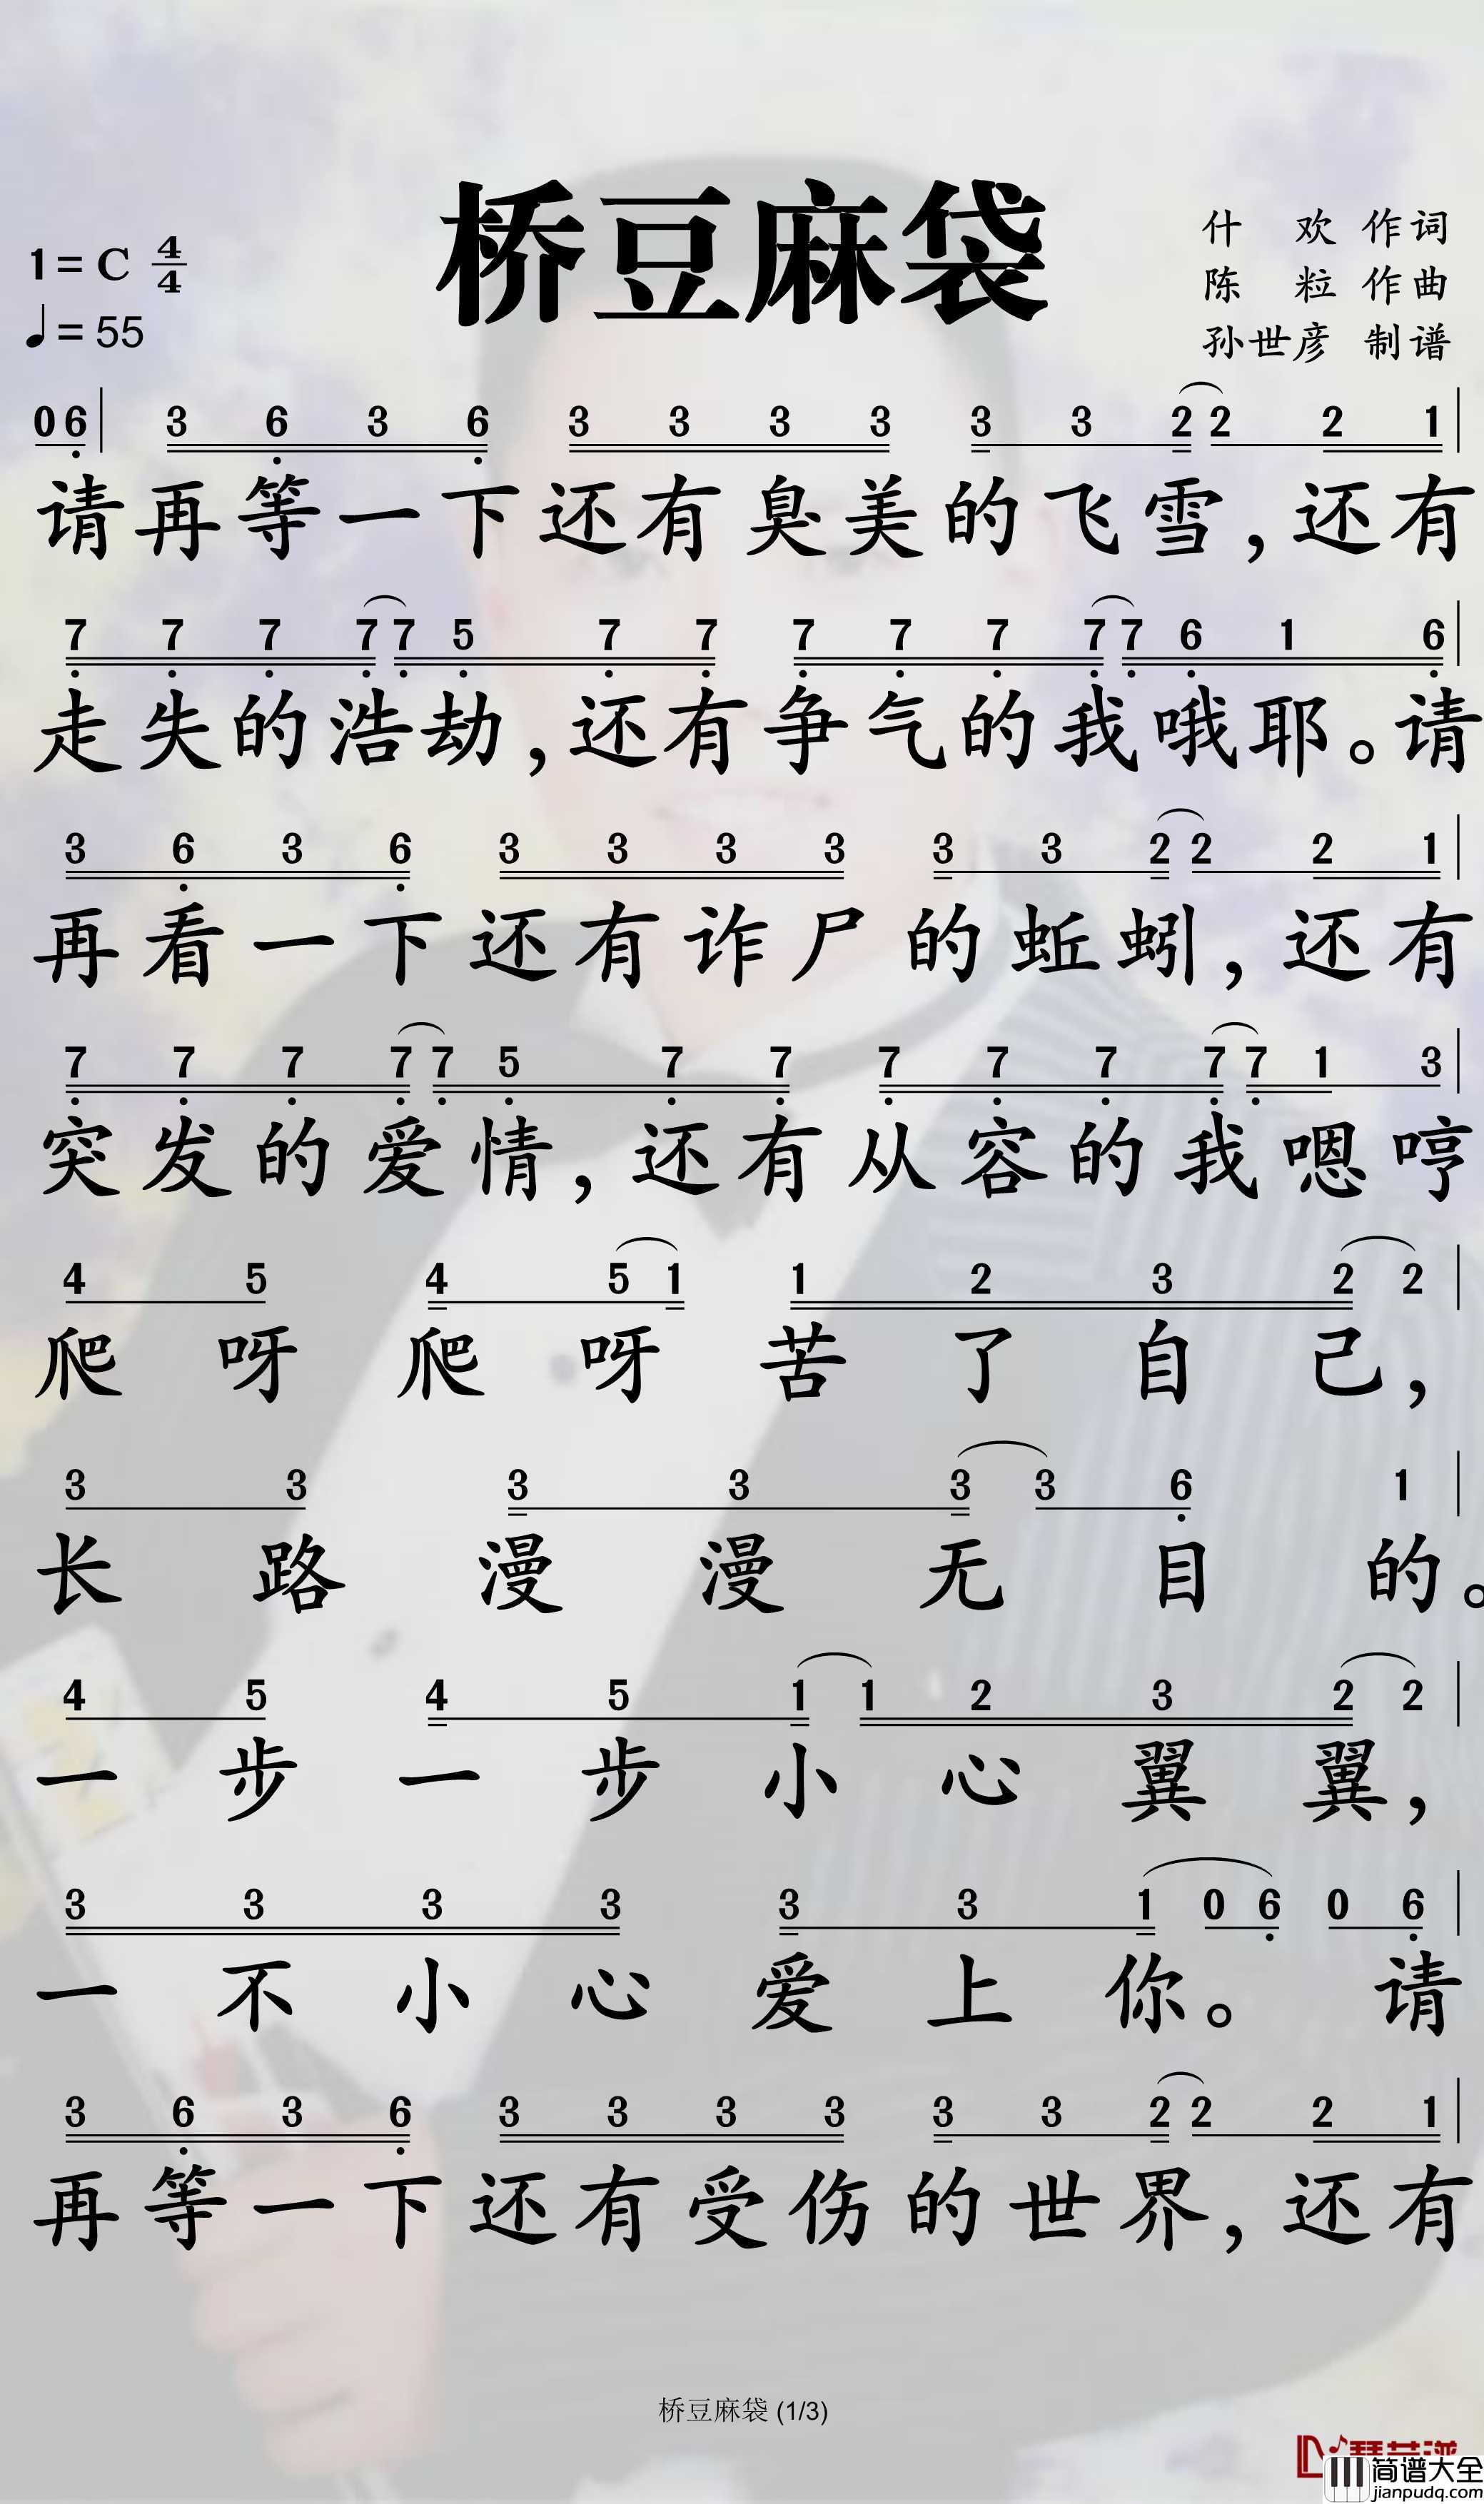 桥豆麻袋
1=C 4/4
♩=55
什 欢 作词
陈 粒 作曲
孙世彦 制谱
0 6 | 3 6 3 6 3 3 3 3 3 3 2 2 2 1 |
请再等一下还有臭美的飞雪,还有
7 7 7 7 7 5 7 7 7 7 7 7 7 6 1 6 |
走失的浩劫,还有争气的我哦耶。请
3 6 3 6 3 3 3 3 3 3 2 2 2 1 |
再看一下还有诈尸的蚯蚓,还有
7 7 7 7 7 5 7 7 7 7 7 7 7 1 3 |
突发的爱情,还有从容的我嗯哼
4 5 4 5 1 1 2 3 2 2 |
爬呀爬呀苦了自己,
3 3 3 3 3 3 6 1 |
长路漫漫无目的。
4 5 4 5 1 1 2 3 2 2 |
一步一步小心翼翼,
3 3 3 3 3 3 1 0 6 0 6 |
一不小心爱上你。 请
3 6 3 6 3 3 3 3 3 3 2 2 2 1 |
再等一下还有受伤的世界,还有
桥豆麻袋 (1/3)
简谱大全
jianpudq.com